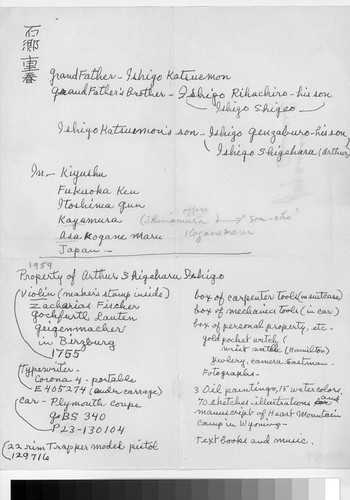 石郷 重春
Grand Father - Ishigo Katsuemon
Grand Father's Brother - Ishigo Rihachiro - his son
Ishigo Shigeo
Ishigo Katsuemon's son - Ishigo Genzaburo - his son
Ishigo Shigeharu (Arthur)
In - Kiyushu
Fukuoka Ken
Itoshima Gun
office
Kayamura "Son-cho"
Aza Kogane Maru Koganemaru
Japan -
1959
Property of Arthur Shigeharu Ishigo
Violin (maker's stamp inside)
Zacharias Fischer
Hochfurftl, lauten
Geigenmacher
in Birzburg
1755
Typewriter -
Corona 4 - portable
E405274 (under carriage)
Car - Plymouth coupe
9BS 340
P23-130104
(22 rim Trapper model pistol
129716
box of carpenter tools (in suitcase)
box of mechanics tools (in car)
box of personal property, etc -
gold pocket watch
wrist watch (Hamilton)
jewlery, camera Eastman.
Fotographs -
3 Oil paintings, 15 water colors,
70 sketches - illustrations and for
manuscript of Heart Mountain
Camp in Wyoming -
Text books and music.